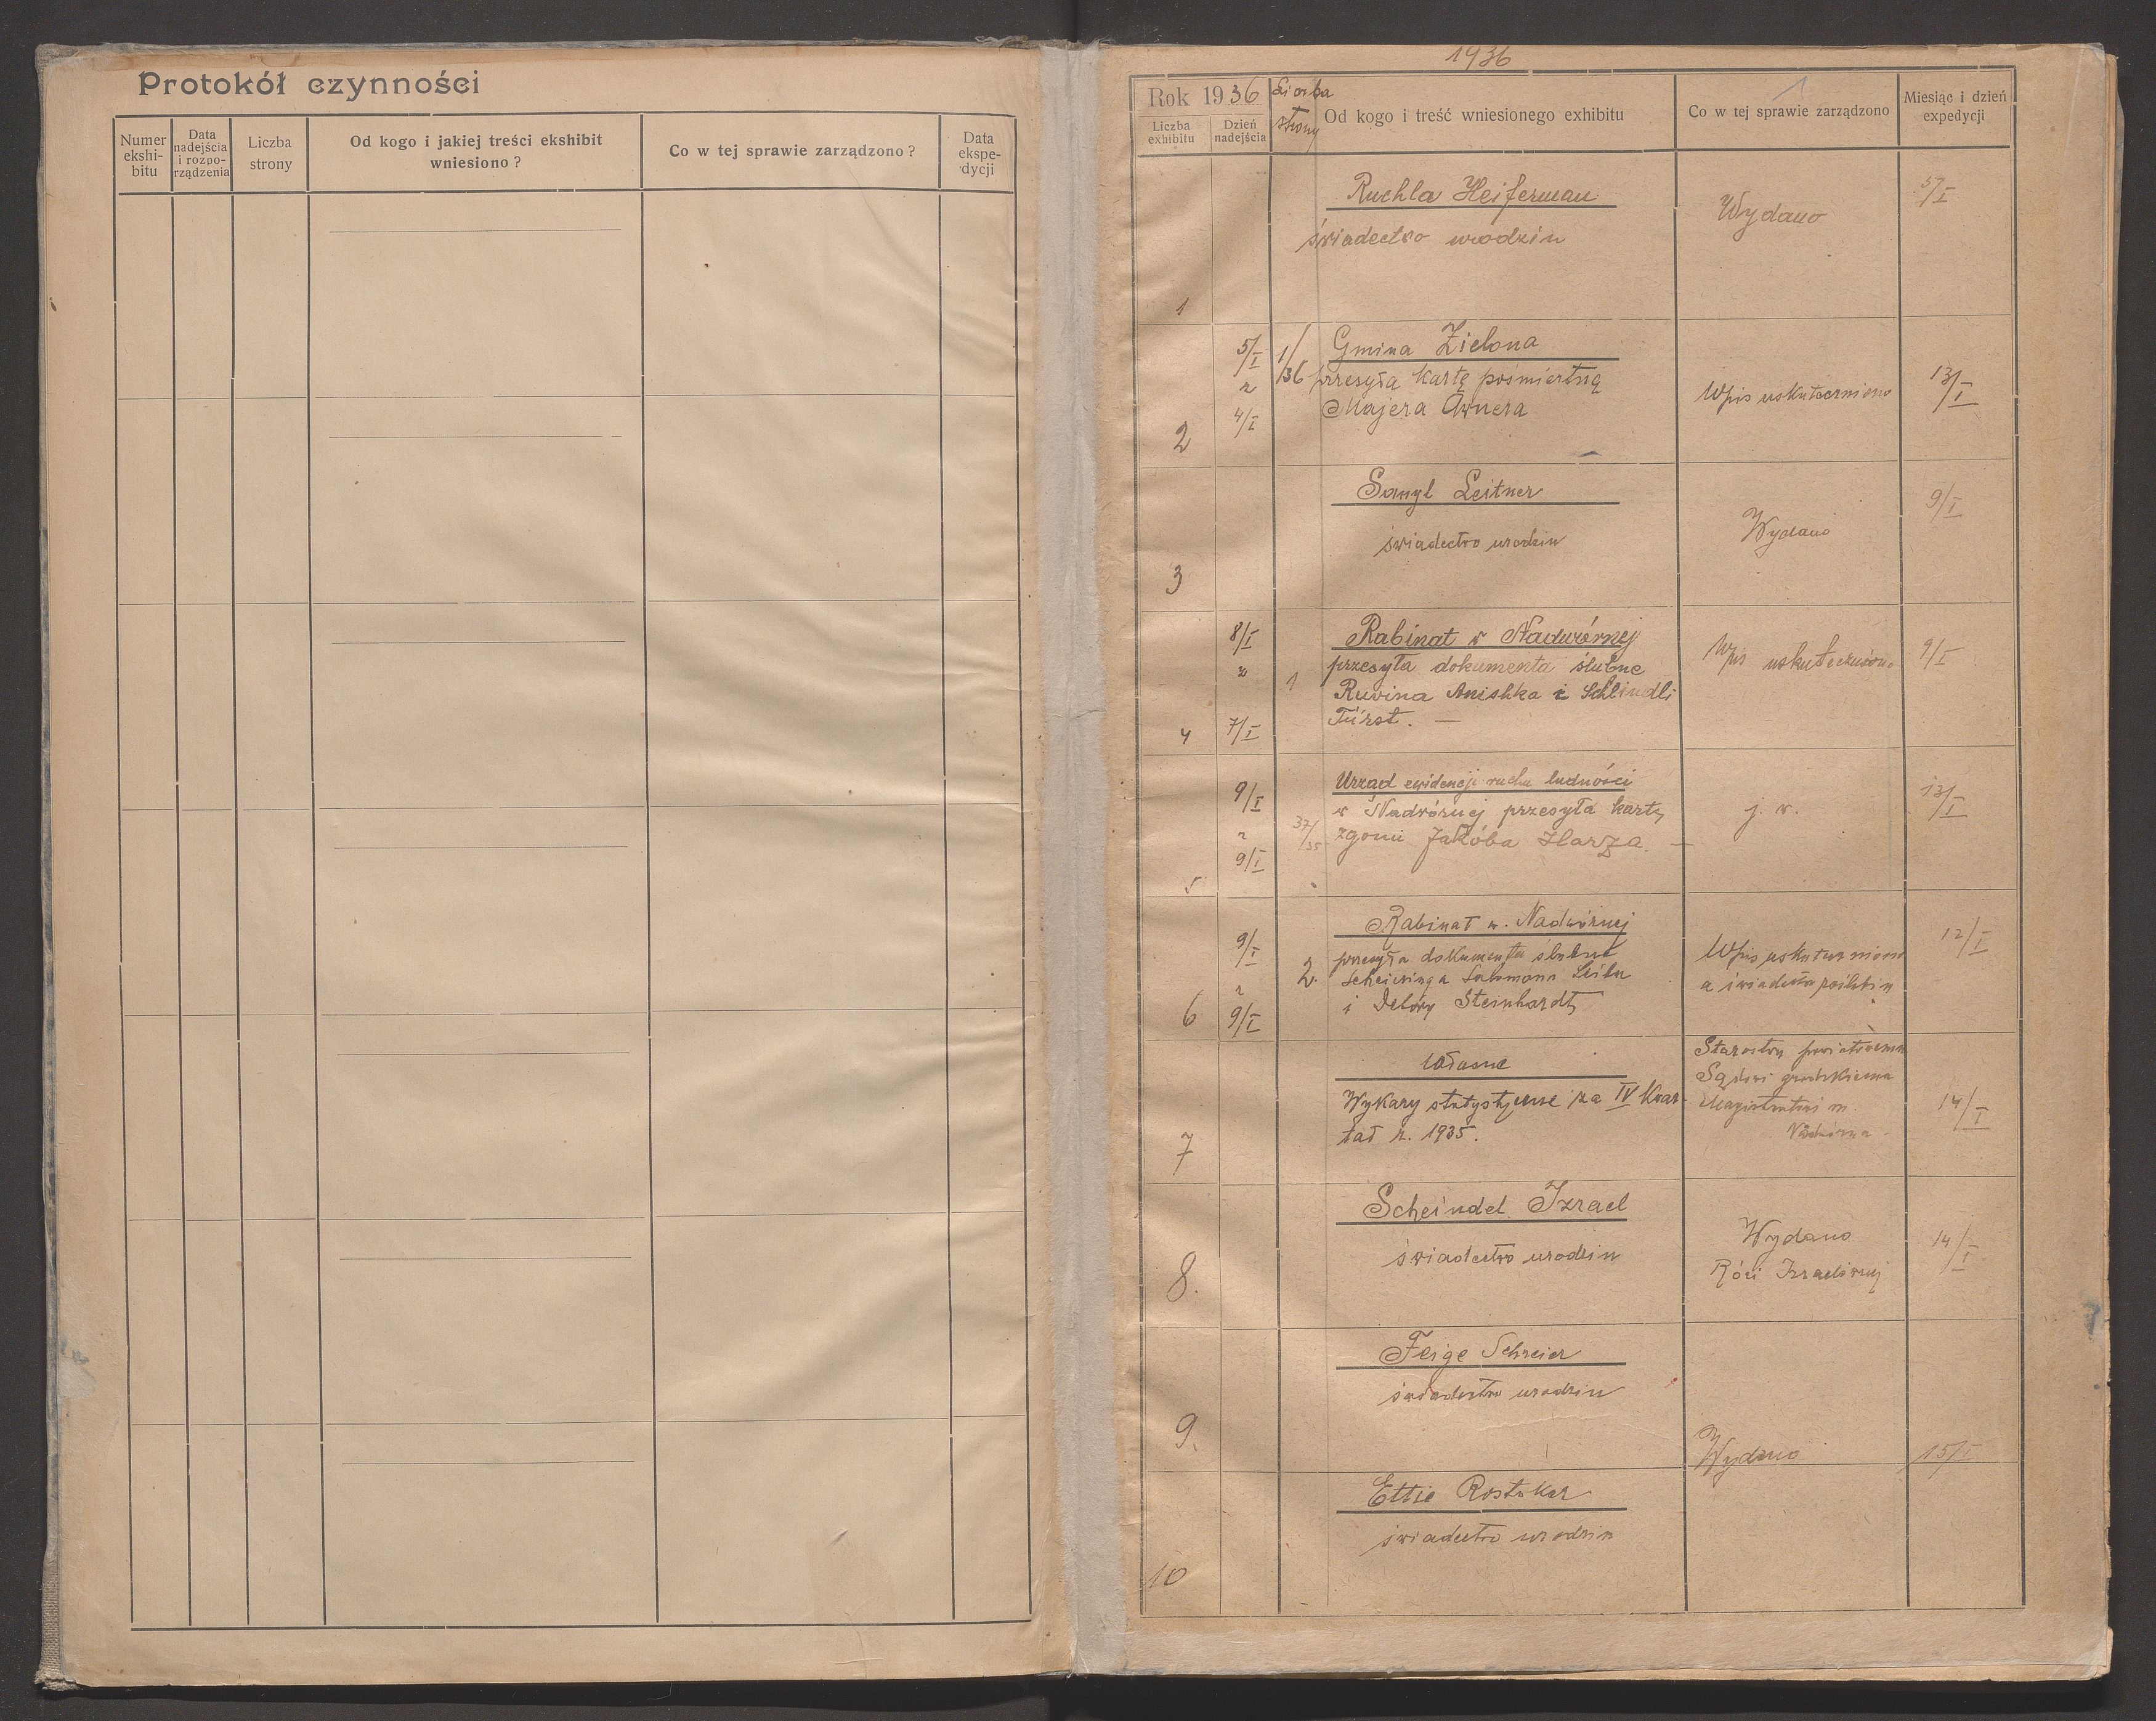 Protokół czynności
Numer
ekshi-
bitu
Data
nadejścia
i rozpo-
rządzenia
Liczba
strony
Od kogo i jakiej treści ekshibit
wniesiono ?
Co w tej sprawie zarządzono ?
Data
ekspe-
dycji
1936
Rok 1936
Liczba
exhibitu
Dzień
nadejścia
Liczba
strony
Od kogo i treść wniesionego exhibitu
1
Co w tej sprawie zarządzono
Miesiąc i dzień
expedycji
Ruchla Heiferman
świadectwo urodzin
Wydano
5/I
1
5/I
z
4/I
1/36
Gmina Zielona
przesyła kartę pośmiertną
Majera Awnera
Wpis uskuteczniono
13/I
2
Samyl Leitner
świadectwo urodzin
Wydano
9/I
3
8/I
z
7/I
1
Rabinat w Nadwórnej
przesyła dokumenta ślubne
Ruvina Anishka i Schleindli
Fürst. —
Wpis uskuteczniono
9/I
4
9/I
z
9/I
37/35
Urząd ewidencji ruchu ludności
w Nadwórnej przesyła kartę
zgonu Jakóba Harza. —
j. w.
13/I
5
9/I
z
9/I
2.
Rabinat w. Nadwórnej
przesyła dokumenta ślubne
Salamona Leiba
i Debory Steinhardt
Wpis uskuteczniono
a świadectwo
12/I
6
Własne
Wykazy statystyczne za IV kwar-
tał r. 1935.
Starostwu powiatowemu
Sądowi grodzkiemu
Magistratowi m.
Nadwórna
14/I
7
Scheindel Izrael
świadectwo urodzin
Wydano
Rózi Izraelównej
14/I
8.
Feige Schreier
świadectwo urodzin
9.
Wydano
15/I
Ettie Rostoker
świadectwo urodzin
10